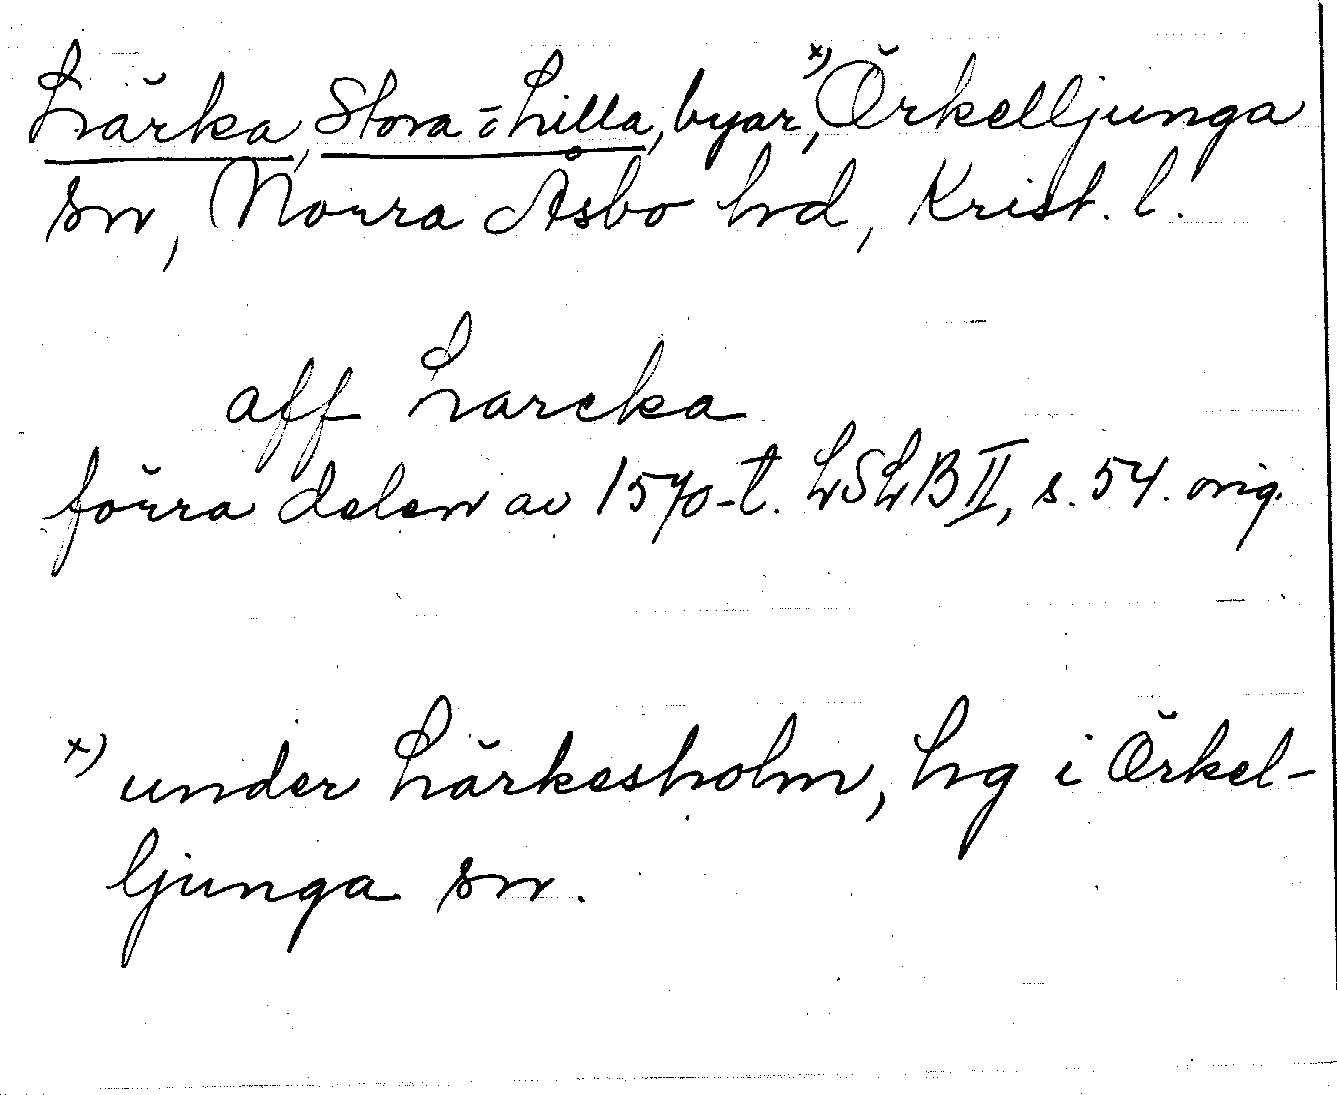 Lärka, Stora o Lilla, byar,ˣ⁾ Örkelljunga
sn, Norra Åsbo hd, Krist. l.
aff Larcka
förra delen av 1570-t. LSLB II, s. 54. orig.
ˣ⁾ under Lärkesholm, hg i Örkel-
ljunga sn.